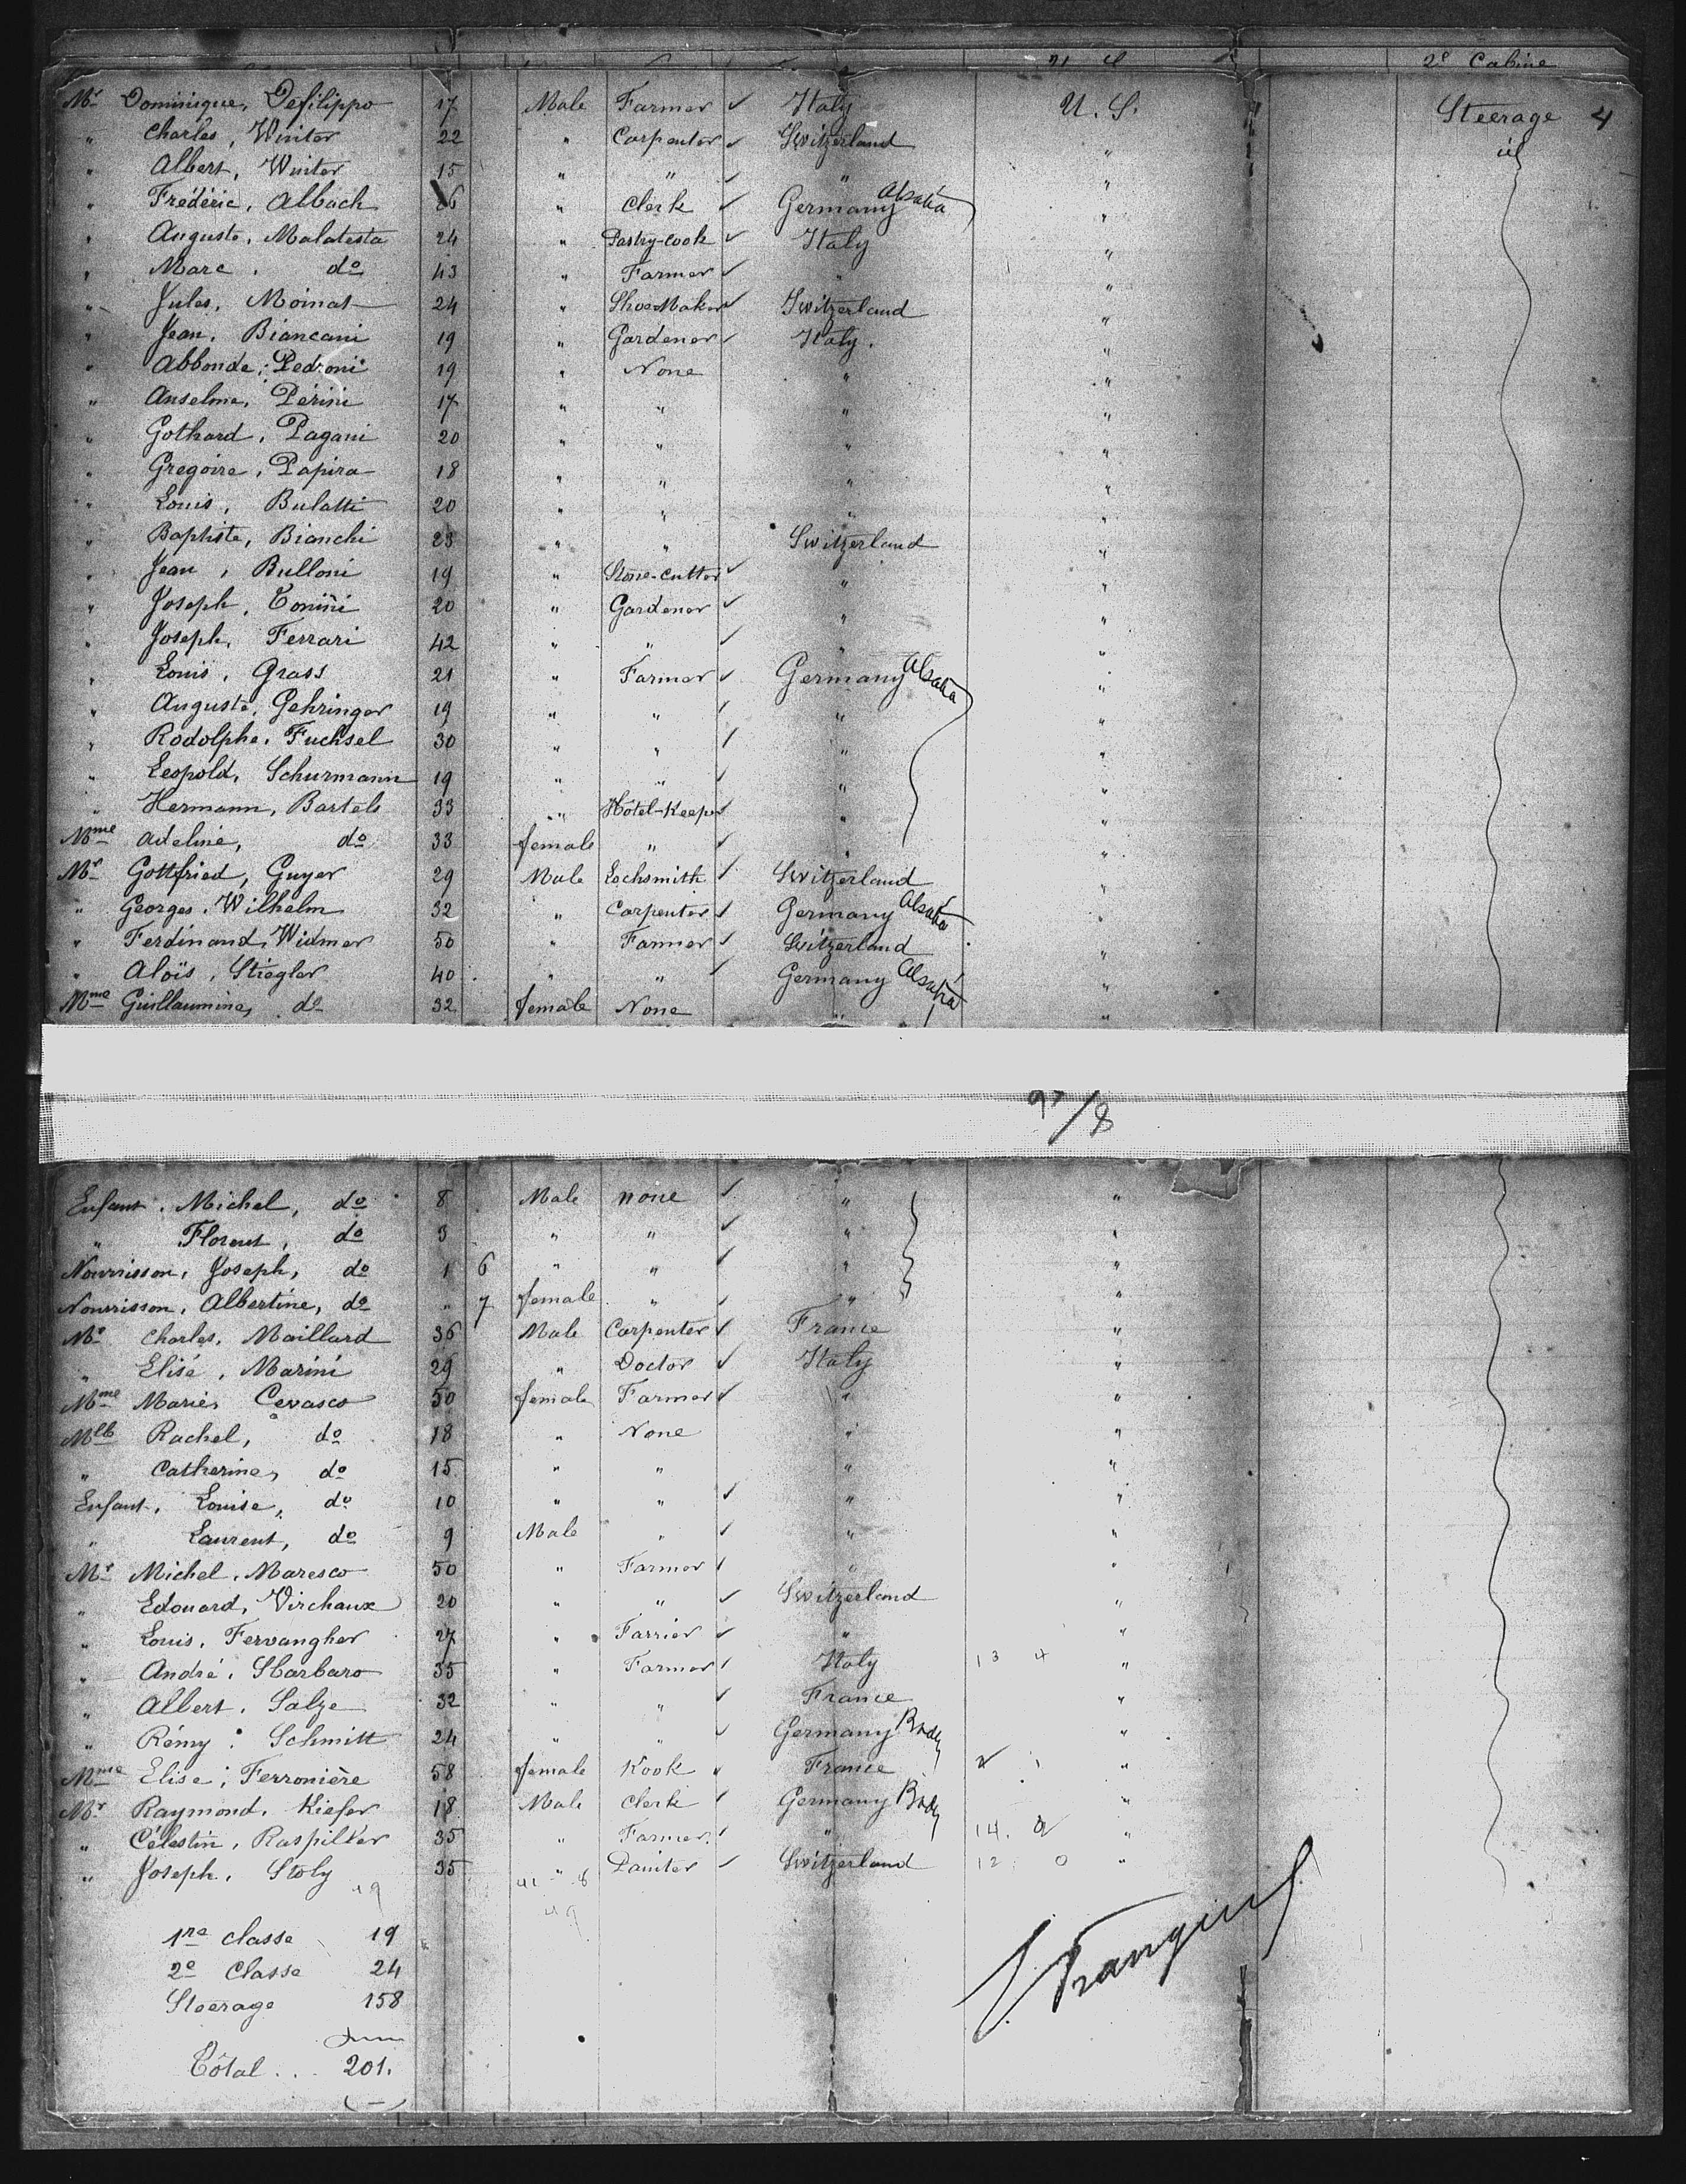 2e Cabine
Mr Dominique, Defilippo 17 Male Farmer ✓ Italy U. S. Steerage 4
" Charles, Winter 22 " Carpenter ✓ Switzerland " id
" Albert, Winter 15 " " ✓ " "
" Frédéric, Albach 26 " Clerk ✓ Germany Alsatia "
" Auguste, Malatesta 24 " Pastry-Cook ✓ Italy "
" Marc, do 43 " Farmer ✓ " "
" Jules, Moinat 24 " ShoeMaker ✓ Switzerland "
" Jean, Biancani 19 " Gardener ✓ Italy. "
" Abbonde, Pedroni 19 " None " "
" Anselme, Périni 17 " " " "
" Gothard, Pagani 20 " " " "
" Gregoire, Papira 18 " " " "
" Louis, Bulatti 20 " " " "
" Baptiste, Bianchi 23 " " Switzerland "
" Jean, Bulloni 19 " Stone-Cutter ✓ " "
" Joseph, Tonini 20 " Gardener ✓ " "
" Joseph, Ferrari 42 " " ✓ " "
" Louis, Grass 21 " Farmer ✓ Germany Alsatia "
" Auguste, Gehringer 19 " " ✓ " "
" Rodolphe, Fuchsel 30 " " ✓ " "
" Leopold, Schurmann 19 " " ✓ " "
" Hermann, Bartels 33 " Hôtel-Keeper ✓ " "
Mme Adeline, do 33 female " ✓ " "
Mr Gottfried, Guyer 29 Male Locksmith ✓ Switzerland "
" Georges, Wilhelm 32 " Carpenter ✓ Germany Alsatia "
" Ferdinand, Widmer 50 " Farmer ✓ Switzerland "
" Aloïs, Stiegler 40 " " ✓ Germany Alsatia "
Mme Guillaumine, do 32 female None " "
97/8
Enfant, Michel, do 8 Male none ✓ " "
" Florent, do 3 " " ✓ " "
Nourrisson, Joseph, do 1 6 " " ✓ " "
Nourrisson, Albertine, do " 7 female " ✓ " "
Mr Charles, Maillard 36 Male Carpenter ✓ France "
" Elisé, Marini 29 " Doctor ✓ Italy "
Mme Marie, Cevasco 50 female Farmer ✓ " "
Mlle Rachel, do 18 " None " "
" Catherine, do 15 " " " "
Enfant, Louise, do 10 " " ✓ " "
" Laurent, do 9 Male " ✓ " "
Mr Michel, Maresco 50 " Farmer ✓ " "
" Edouard, Virchaux 20 " " ✓ Switzerland "
" Louis, Fervangher 27 " Farrier ✓ " "
" André, Sbarbaro 35 " Farmer ✓ Italy 13 4 "
" Albert, Salze 32 " " ✓ France "
" Rémy, Schmitt 24 " " ✓ Germany Bady "
Mme Elise, Ferronière 58 female Kook " France "
Mr Raymond, Kiefer 18 Male Clerk ✓ Germany Bady "
" Célestin, Raspiller 35 " Farmer ✓ " 14. "
" Joseph, Stoly 35 " Painter ✓ Switzerland 12 0 "
49
49
1re classe 19
2e Classe 24
Steerage 158
Tôtal... 201.